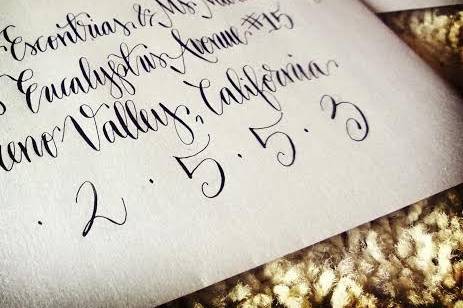 Escontrias, & Ms.
Eucalyptus Avenue #15
reno Valley, California
. 2 . 5 . 5 . 3